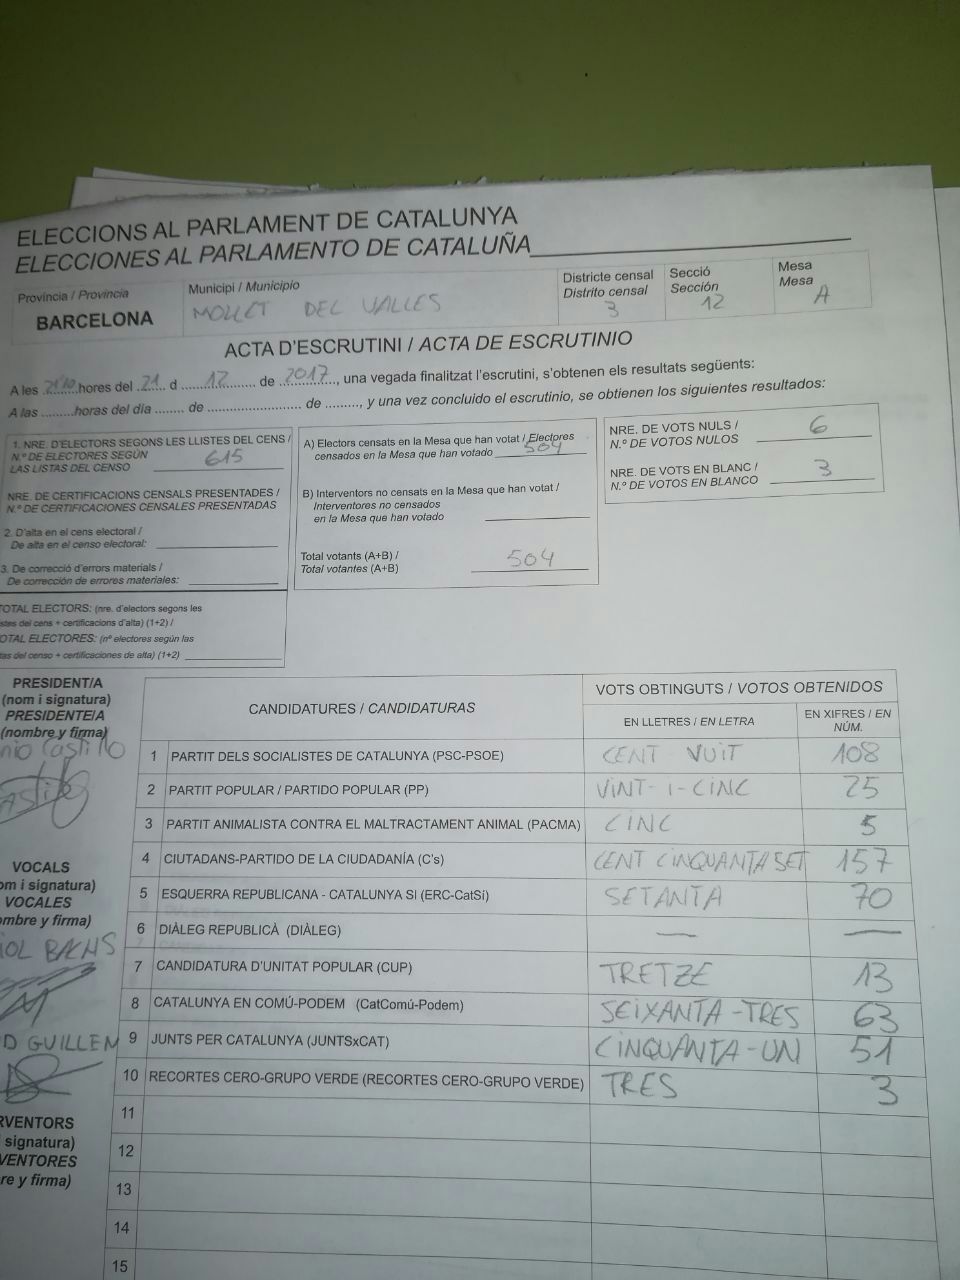 ELECCIONS AL PARLAMENT DE CATALUNYA
ELECCIONES AL PARLAMENTO DE CATALUÑA
Província / Provincia
BARCELONA
Municipi / Municipio
MOLLET DEL VALLES
Districte censal
Distrito censal
3
Secció
Sección
12
Mesa
Mesa
A
ACTA D'ESCRUTINI / ACTA DE ESCRUTINIO
A les 21'10 hores del 21 d 12 de 2017, una vegada finalitzat l'escrutini, s'obtenen els resultats següents:
A las ........horas del día ....... de ....................... de ........, y una vez concluido el escrutinio, se obtienen los siguientes resultados:
1. NRE. D'ELECTORS SEGONS LES LLISTES DEL CENS /
N.º DE ELECTORES SEGÚN
LAS LISTAS DEL CENSO 615
NRE. DE CERTIFICACIONS CENSALS PRESENTADES /
N.º DE CERTIFICACIONES CENSALES PRESENTADAS
2. D'alta en el cens electoral /
De alta en el censo electoral:
3. De correcció d'errors materials /
De corrección de errores materiales:
TOTAL ELECTORS: (nre. d'electors segons les
stes del cens + certificacions d'alta) (1+2) /
OTAL ELECTORES: (nº electores según las
tas del censo + certificaciones de alta) (1+2)
A) Electors censats en la Mesa que han votat / Electores
censados en la Mesa que han votado 504
B) Interventors no censats en la Mesa que han votat /
Interventores no censados
en la Mesa que han votado
Total votants (A+B) /
Total votantes (A+B) 504
NRE. DE VOTS NULS /
N.º DE VOTOS NULOS 6
NRE. DE VOTS EN BLANC /
N.º DE VOTOS EN BLANCO 3
PRESIDENT/A
(nom i signatura)
PRESIDENTE/A
(nombre y firma)
nio Castillo
VOCALS
om i signatura)
VOCALES
ombre y firma)
D GUILLEM
RVENTORS
signatura)
VENTORES
re y firma)
CANDIDATURES / CANDIDATURAS
VOTS OBTINGUTS / VOTOS OBTENIDOS
EN LLETRES / EN LETRA
EN XIFRES / EN
NÚM.
1 PARTIT DELS SOCIALISTES DE CATALUNYA (PSC-PSOE) CENT - VUIT 108
2 PARTIT POPULAR / PARTIDO POPULAR (PP) VINT-I-CINC 25
3 PARTIT ANIMALISTA CONTRA EL MALTRACTAMENT ANIMAL (PACMA) CINC 5
4 CIUTADANS-PARTIDO DE LA CIUDADANÍA (C's) CENT CINQUANTA SET 157
5 ESQUERRA REPUBLICANA - CATALUNYA SI (ERC-CatSí) SETANTA 70
6 DIÀLEG REPUBLICÀ (DIÀLEG) — —
7 CANDIDATURA D'UNITAT POPULAR (CUP) TRETZE 13
8 CATALUNYA EN COMÚ-PODEM (CatComú-Podem) SEIXANTA-TRES 63
9 JUNTS PER CATALUNYA (JUNTSxCAT) CINQUANTA-UN 51
10 RECORTES CERO-GRUPO VERDE (RECORTES CERO-GRUPO VERDE) TRES 3
11
12
13
14
15